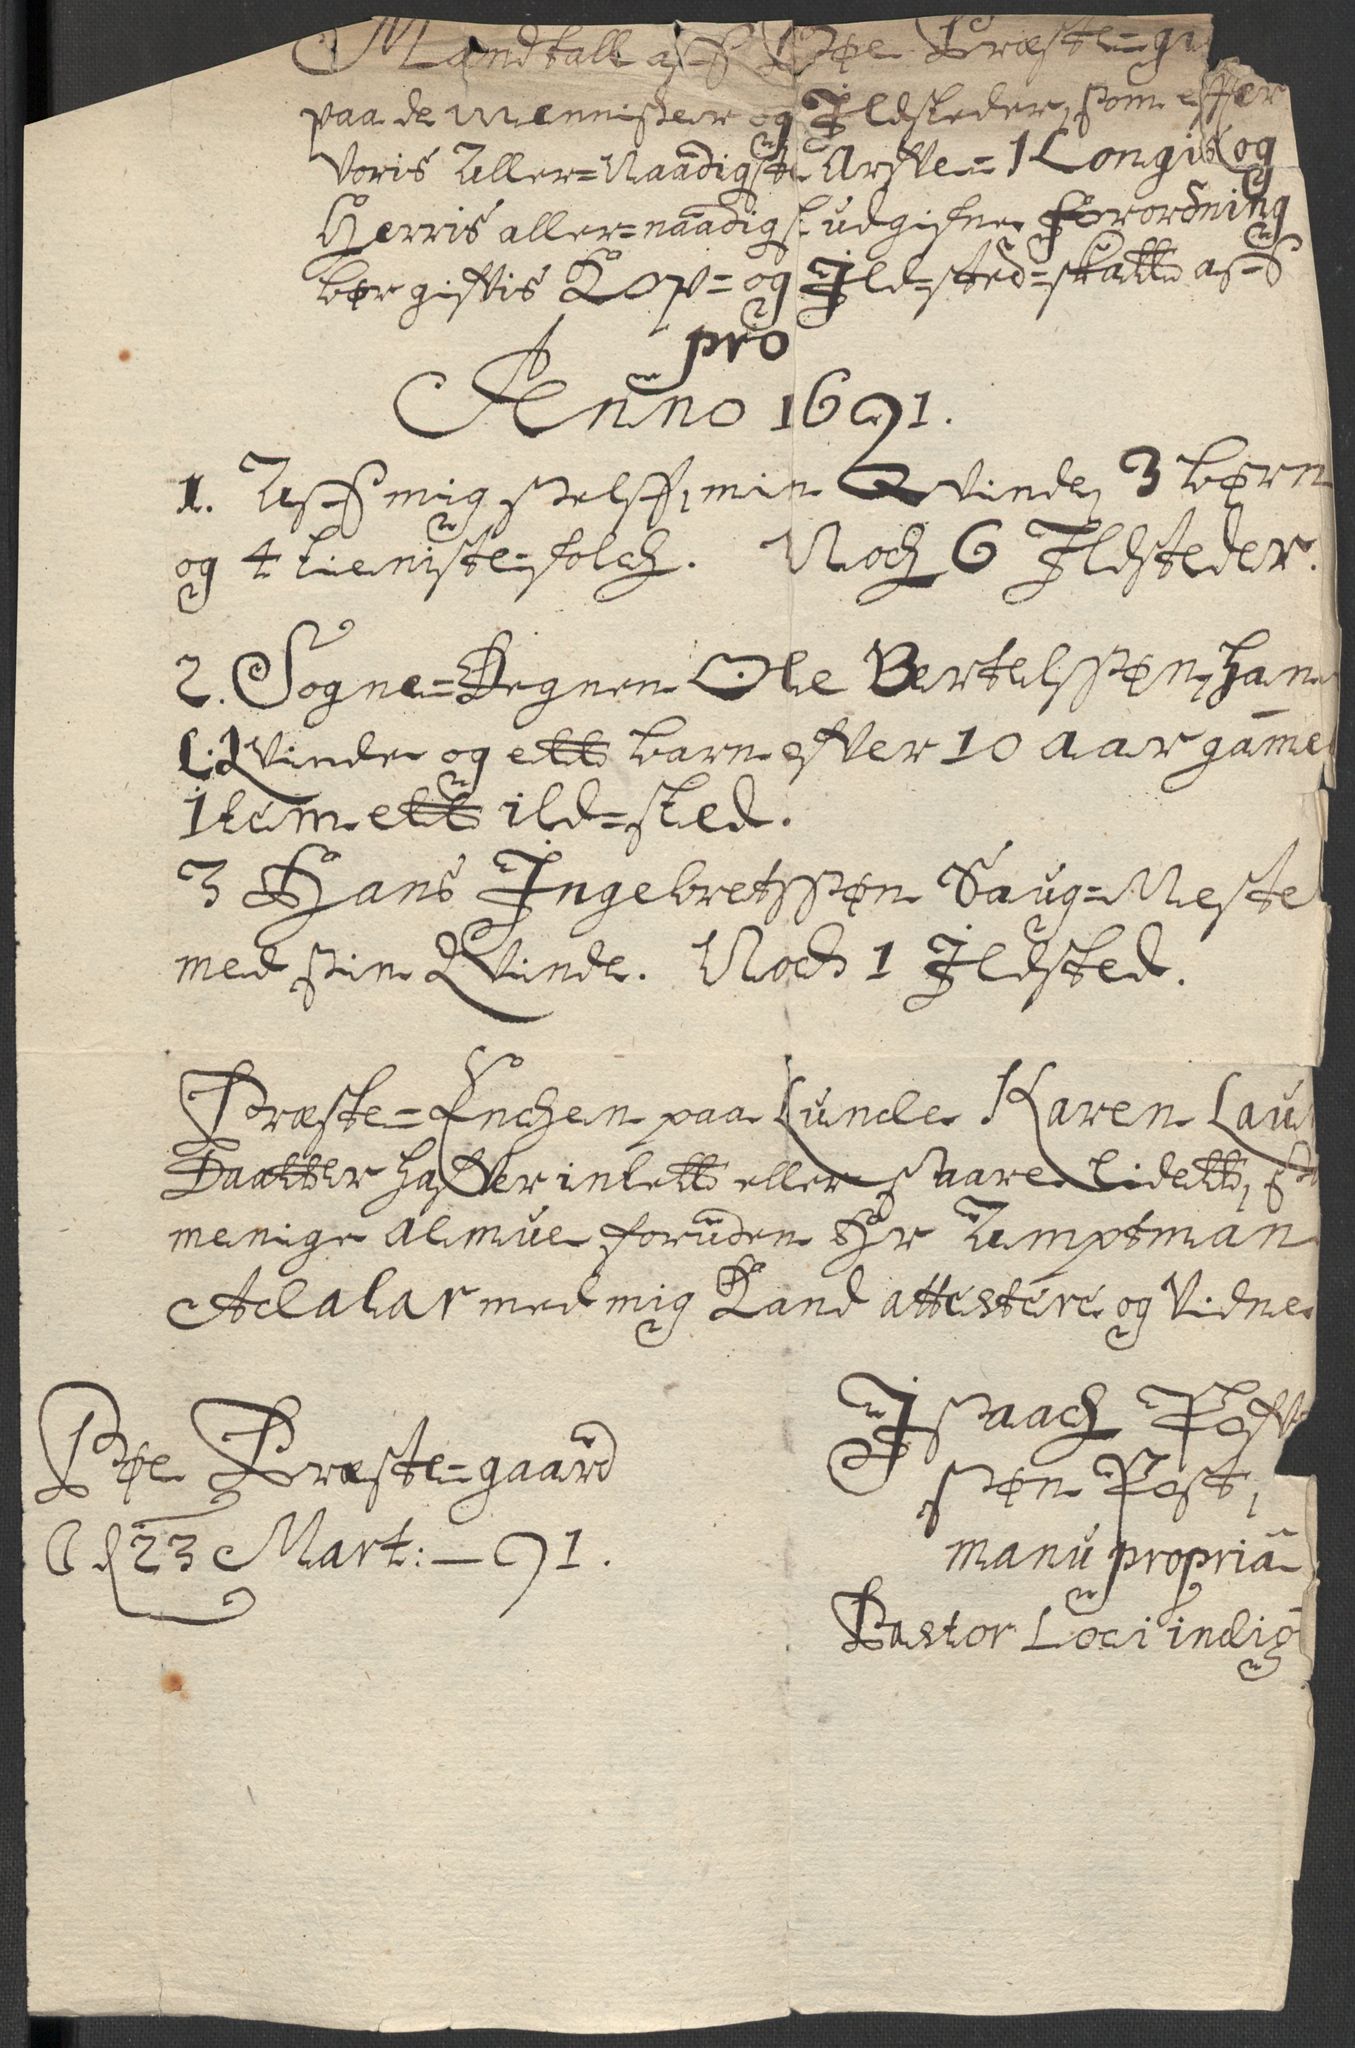 Mandtall aff Bøe Præste-gi
paa de Mennisker og Ildsteder, som effter
voris Aller-Naadigste Arffve-Kongis og
Herris aller-naadigst udgifne Forordning
bør giffvis Kop- og Ild-sted-skatt aff
pro
Anno 1691.
1. Aff mig sielff, min Qvinde, 3 børn
og 4 tieniste-folch. Noch 6 Ildsteder.
2. Sogne-Degnen Ole Bertelssøn, han
Qvinde og ett barn offver 10 aar gamel
Item ett ild-sted.
3 Hans Ingebretssøn Saug-Meste
med sin Qvinde. Noch 1 Ildsted.
Præste-Enchen paa Lunde Karen Lau
Daatter haffver intett eller saare lidett,
menige Almue foruden Hr Amptman
Adalar med mig Kand attestere og vidne
Isaach Pofv
søn Post,
manu propria
Pastor Loci indig
Bøe Præste-gaard
d 23 Mart: - 91.